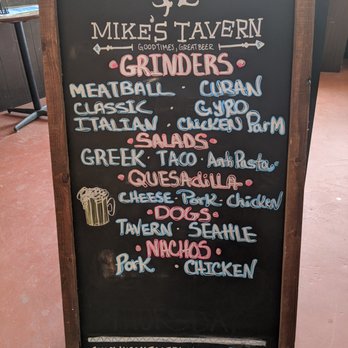 MIKE'S TAVERN
GOOD TIMES, GREAT BEER
• GRINDERS •
MEATBALL · CUBAN
CLASSIC · GYRO
ITALIAN · CHICKEN PARM
• SALADS •
GREEK · TACO · AntiPasta
• QUESAdiLLA •
CHEESE · Pork · Chicken
• DOGS •
TAVERN · SEAHLE
• NACHOS •
Pork · CHICKEN